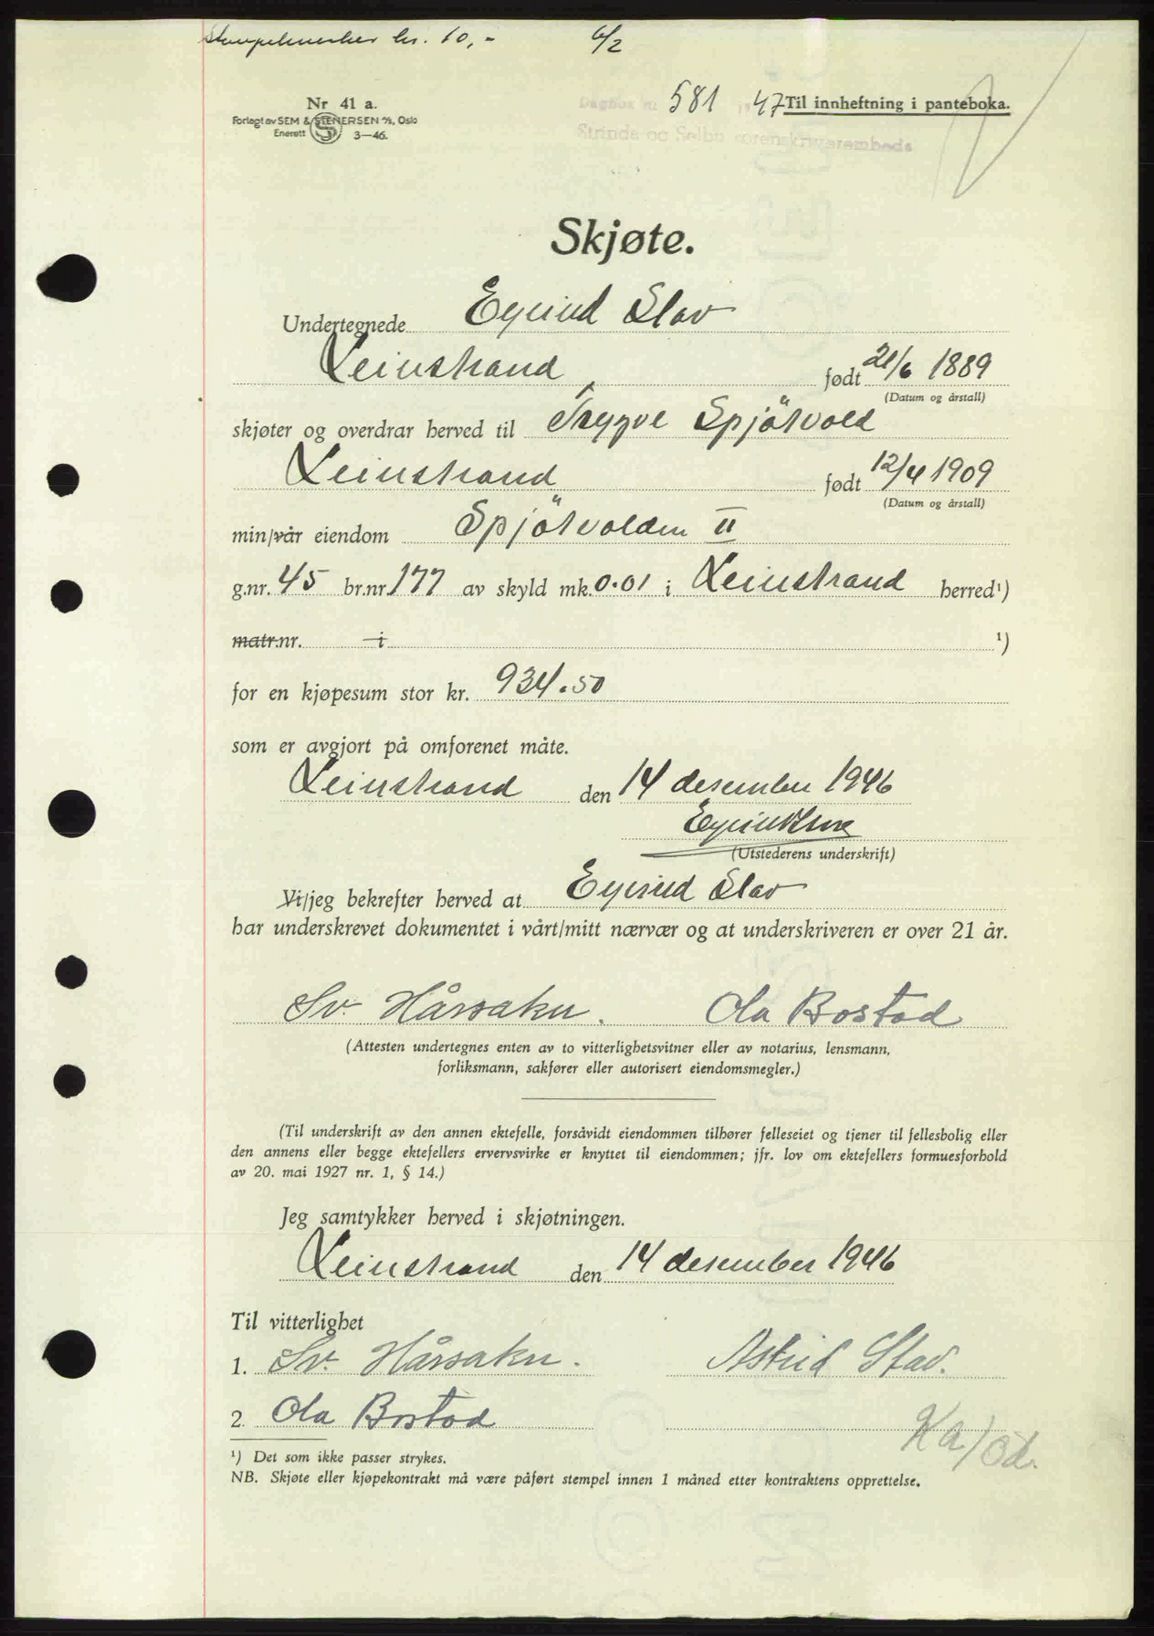 Stempelmerker kr. 10,- 6/2
Nr 41 a.
Forlagt av SEM & STENERSEN A/S, Oslo
Enerett S 3—46.
Dagbok nr. 581 19 47 Til innheftning i panteboka.
Strinda og Selbu sorenskriverembede
Skjøte.
Undertegnede Eyvind Stav
Leinstrand født 21/6 1889
(Datum og årstall)
skjøter og overdrar herved til Trygve Spjötvold
Leinstrand født 12/4 1909
(Datum og årstall)
min/vår eiendom Spjötvolden II
g.nr. 45 br.nr. 177 av skyld mk. 0.01 i Leinstrand herred¹)
matr.nr. i ¹)
for en kjøpesum stor kr. 934.50
som er avgjort på omforenet måte.
Leinstrand den 14 desember 1946
Eyvind Stav
(Utstederens underskrift)
Vi/jeg bekrefter herved at Eyvind Stav
har underskrevet dokumentet i vårt/mitt nærvær og at underskriveren er over 21 år.
Sv. Hårsaker. Ola Bostad
(Attesten undertegnes enten av to vitterlighetsvitner eller av notarius, lensmann,
forliksmann, sakfører eller autorisert eiendomsmegler.)
(Til underskrift av den annen ektefelle, forsåvidt eiendommen tilhører felleseiet og tjener til fellesbolig eller
den annens eller begge ektefellers ervervsvirke er knyttet til eiendommen; jfr. lov om ektefellers formuesforhold
av 20. mai 1927 nr. 1, § 14.)
Jeg samtykker herved i skjøtningen.
Leinstrand den 14 desember 1946
Til vitterlighet
1. Sv. Hårsaker. Astrid Stav.
2. Ola Bostad
Ka/Od.
¹) Det som ikke passer strykes.
NB. Skjøte eller kjøpekontrakt må være påført stempel innen 1 måned etter kontraktens opprettelse.